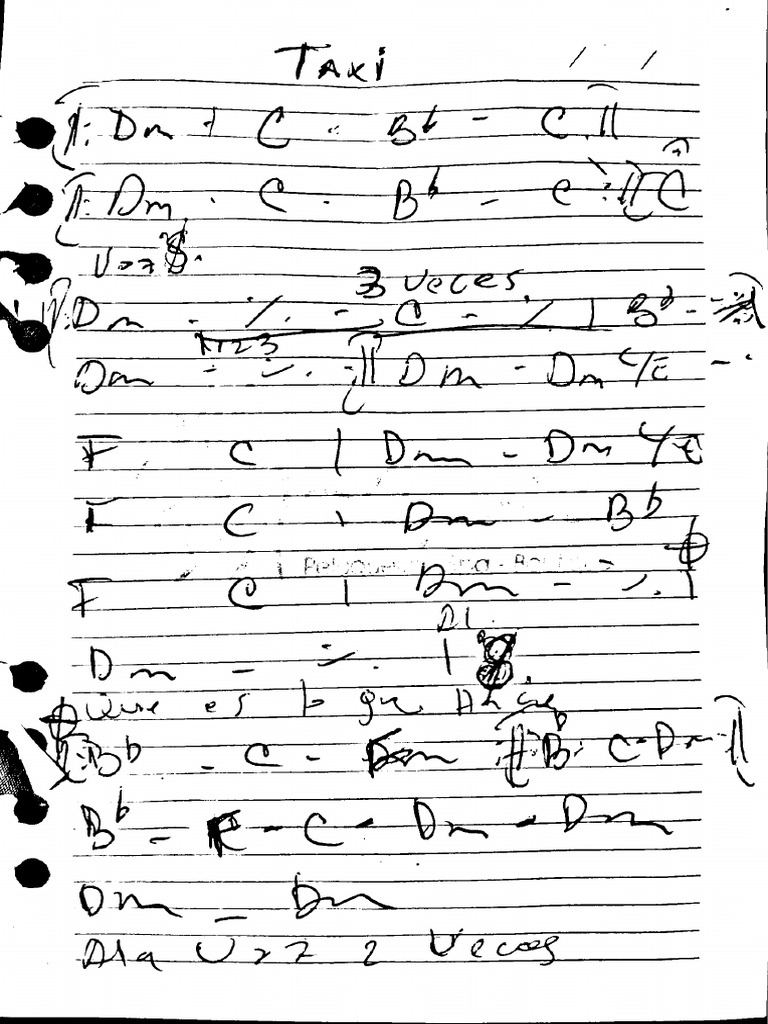 Taxi
||: Dm - C - Bb - C :||
||: Dm - C - Bb - C :|| C
Voz 𝄋
3 veces
||: Dm - ٪ - C - ٪ | Bb -
1 2 3
Dm - ٪ :|| Dm - Dm C/E -
F C | Dm - Dm C/E
F C | Dm - Bb
F C | Dm - ٪ |
Al
Dm - ٪ | 𝄋
que es lo que
||: Bb - C - Dm :|| Bb - C - Dm :||
Bb - C - Dm - Dm
Dm - Dm
A la Voz 2 Veces